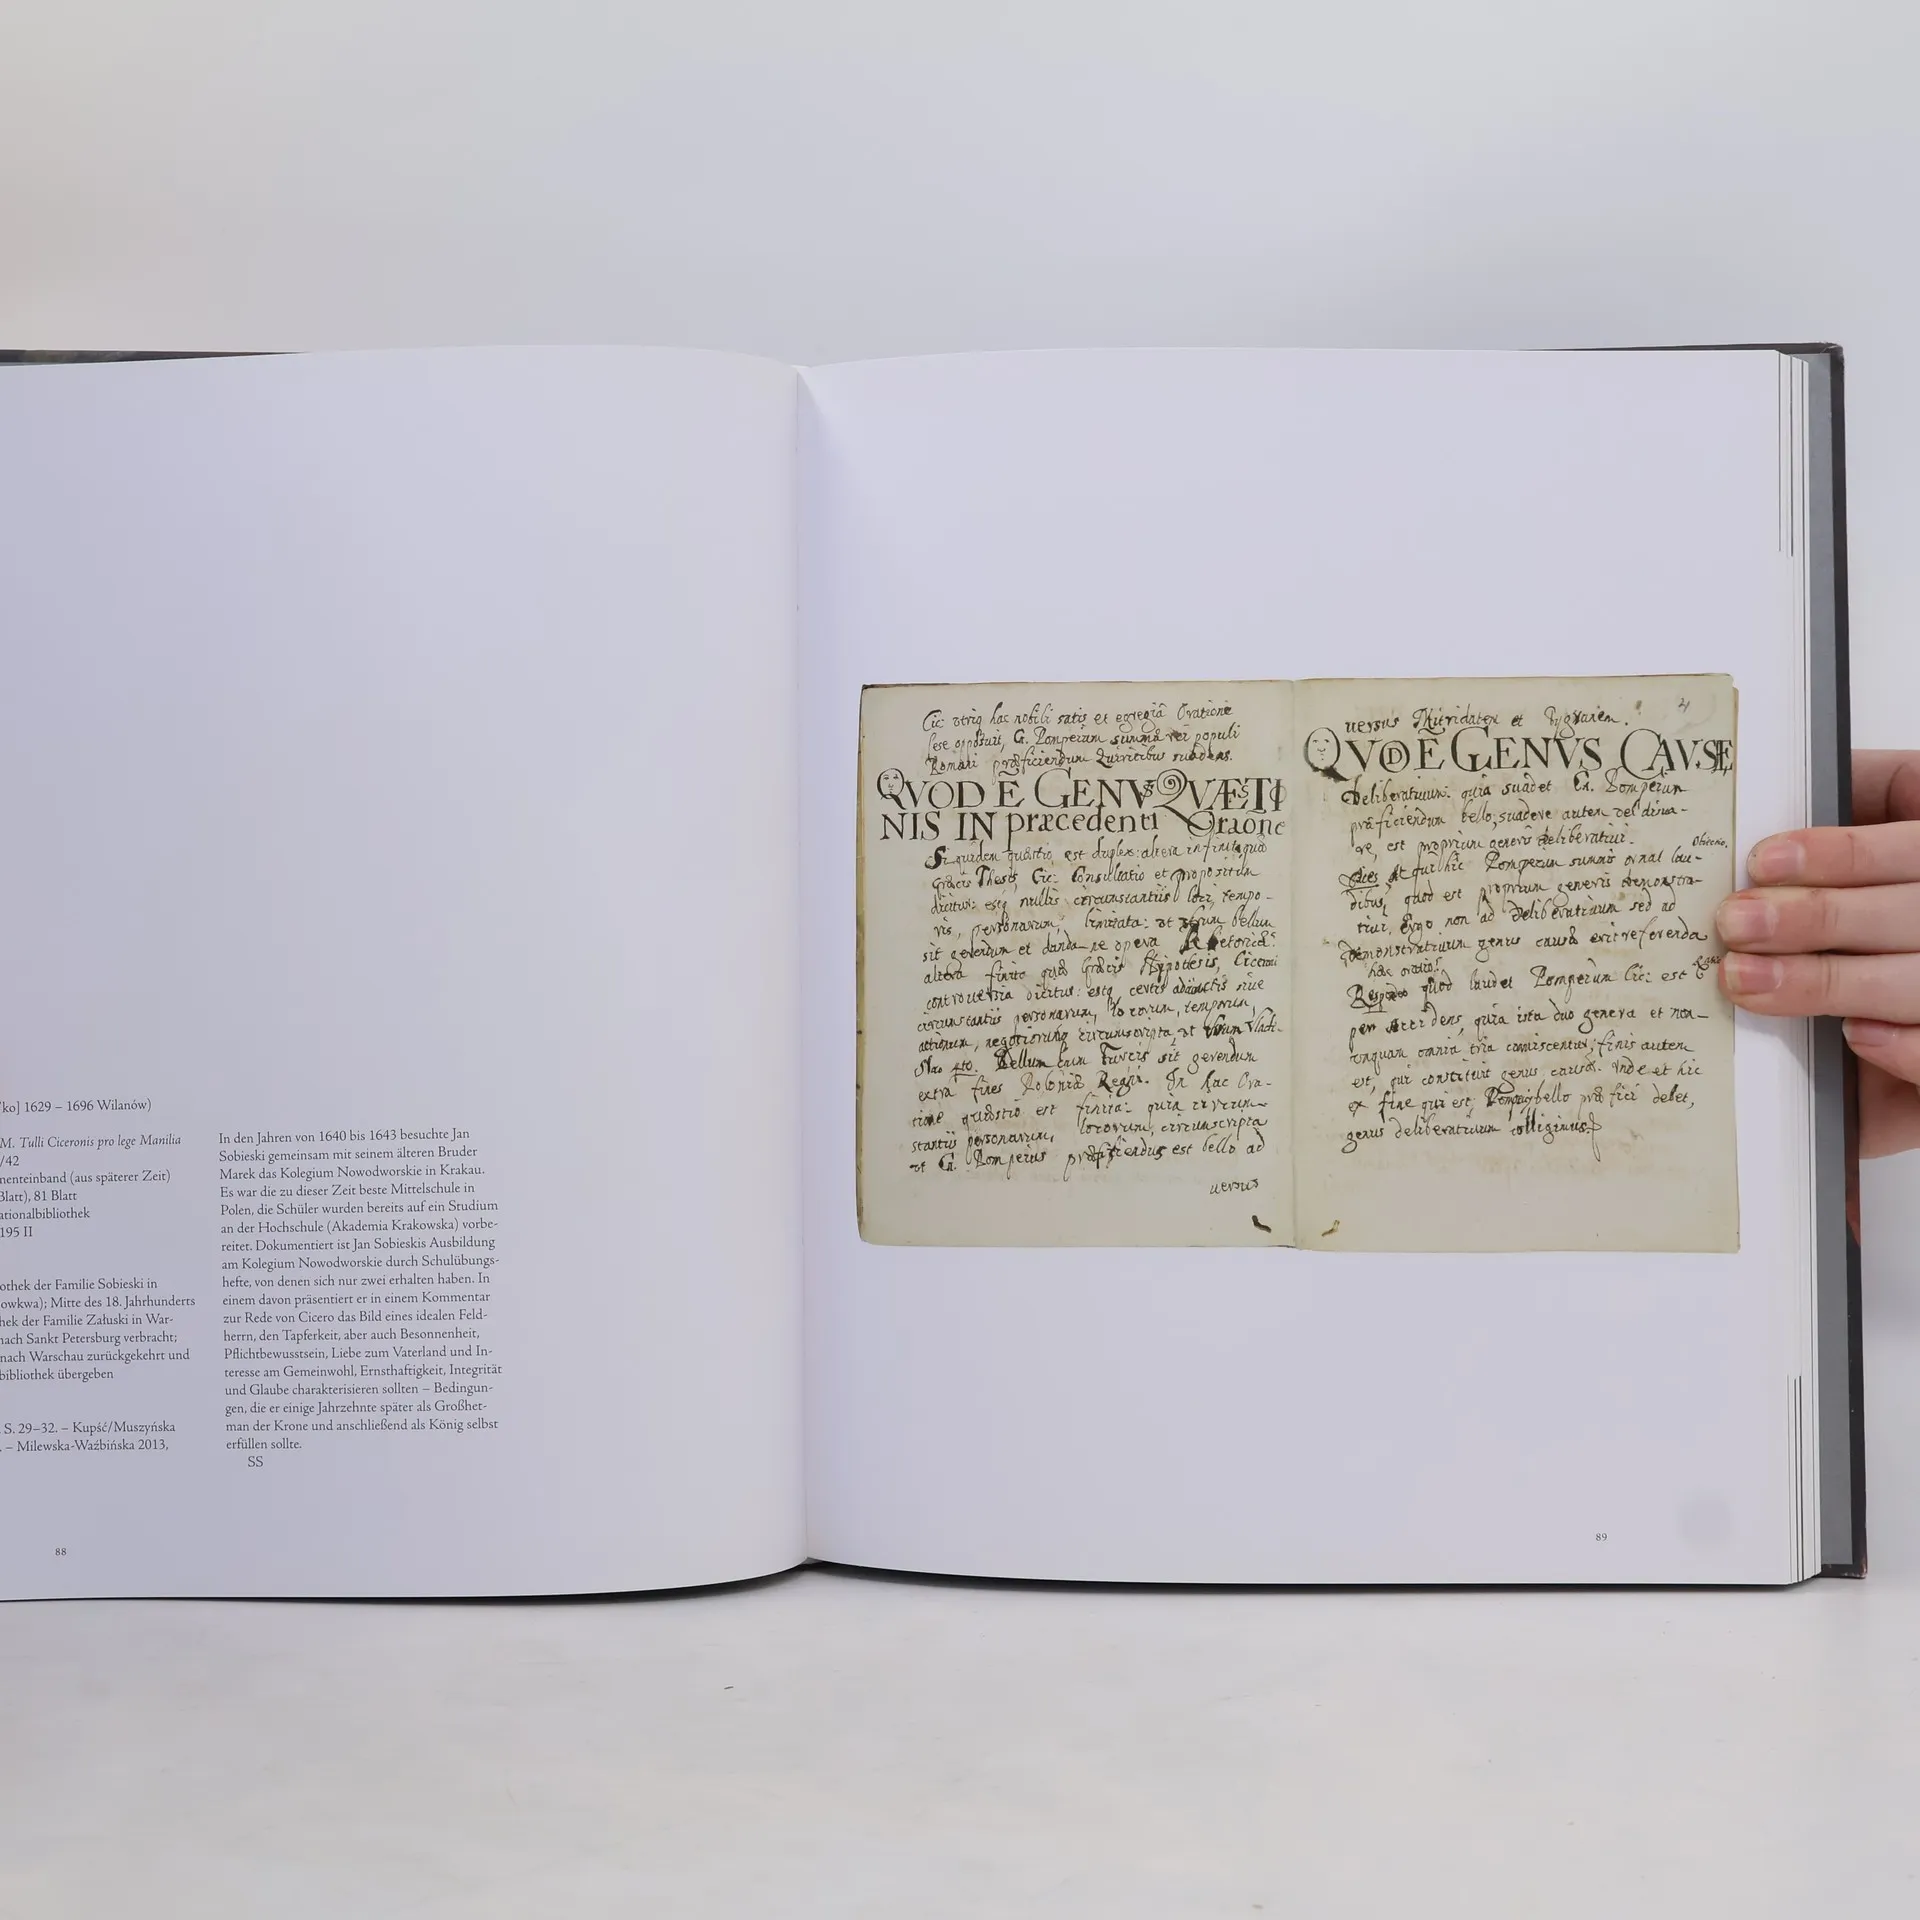 'ko] 1629 – 1696 Wilanów)
M. Tulli Ciceronis pro lege Manilia
/42
nenteinband (aus späterer Zeit)
Blatt), 81 Blatt
ationalbibliothek
195 II
othek der Familie Sobieski in
owkwa); Mitte des 18. Jahrhunderts
hek der Familie Załuski in War-
nach Sankt Petersburg verbracht;
nach Warschau zurückgekehrt und
bibliothek übergeben
S. 29–32. – Kupść/Muszyńska
. – Milewska-Waźbińska 2013,
In den Jahren von 1640 bis 1643 besuchte Jan
Sobieski gemeinsam mit seinem älteren Bruder
Marek das Kolegium Nowodworskie in Krakau.
Es war die zu dieser Zeit beste Mittelschule in
Polen, die Schüler wurden bereits auf ein Studium
an der Hochschule (Akademia Krakowska) vorbe-
reitet. Dokumentiert ist Jan Sobieskis Ausbildung
am Kolegium Nowodworskie durch Schulübungs-
hefte, von denen sich nur zwei erhalten haben. In
einem davon präsentiert er in einem Kommentar
zur Rede von Cicero das Bild eines idealen Feld-
herrn, den Tapferkeit, aber auch Besonnenheit,
Pflichtbewusstsein, Liebe zum Vaterland und In-
teresse am Gemeinwohl, Ernsthaftigkeit, Integrität
und Glaube charakterisieren sollten – Bedingun-
gen, die er einige Jahrzehnte später als Großhet-
man der Krone und anschließend als König selbst
erfüllen sollte.
SS
88
Cic: utriq hac nobili satis et egregiâ Oratione
sese opposuit, G. Pompeium summâ rei populi
Romani præficiendum Quiritibus suadens.
QVOD E GENVS QVÆSTI
NIS IN præcedenti Oraone
Siquidem quæstio est duplex: altera infinita quâ
Græcis Thesis, Cic: Consultatio et propositum
dicitur: estq nullis circumstantiis loci, tempo-
ris, personarum, limitata: ut utrum bellum
sit gerendum et danda ne opera Rhetoricæ:
altera finita quæ Græcis Hypotesis, Ciceroni
controversia dicitur: estq certis adiunctis sive
circumstantiis personarum, locorum, temporum,
actionum, negotiorumq circumscripta, ut utrum Vladi-
slao 4to. Bellum cum Turcis sit gerendum
extra fines Poloniæ Regni. In hac Ora-
tione quæstio est finita: quia circum-
stantiis personarum, locorum, circumscripta
ut Cn. Pompeius præficiendus est bello ad
versus
versus Mitridatem et Tygranem. 4
QVOD E GENVS CAVSÆ
Deliberativum: quia suadet Cn. Pompeium
præficiendum bello, suadere autem vel dissua-
re, est proprium generis deliberativi. Obiectio.
Dices At qui hic Pompeium summis ornat lau-
dibus, quod est proprium generis demonstra-
tivi. Ergo non ad Deliberativum sed ad
Demonstrativum genus causæ erit referenda
hæc oratio?
Respondeo quod laudet Pompeium Cic: est
per accidens, quia ista duo genera et non-
unquam omnia tria comiscentur, finis autem
est, qui constituit genus causæ. Unde et hic
ex fine qui est, Pompeius bello præfici debet,
genus deliberativum colligimus
89